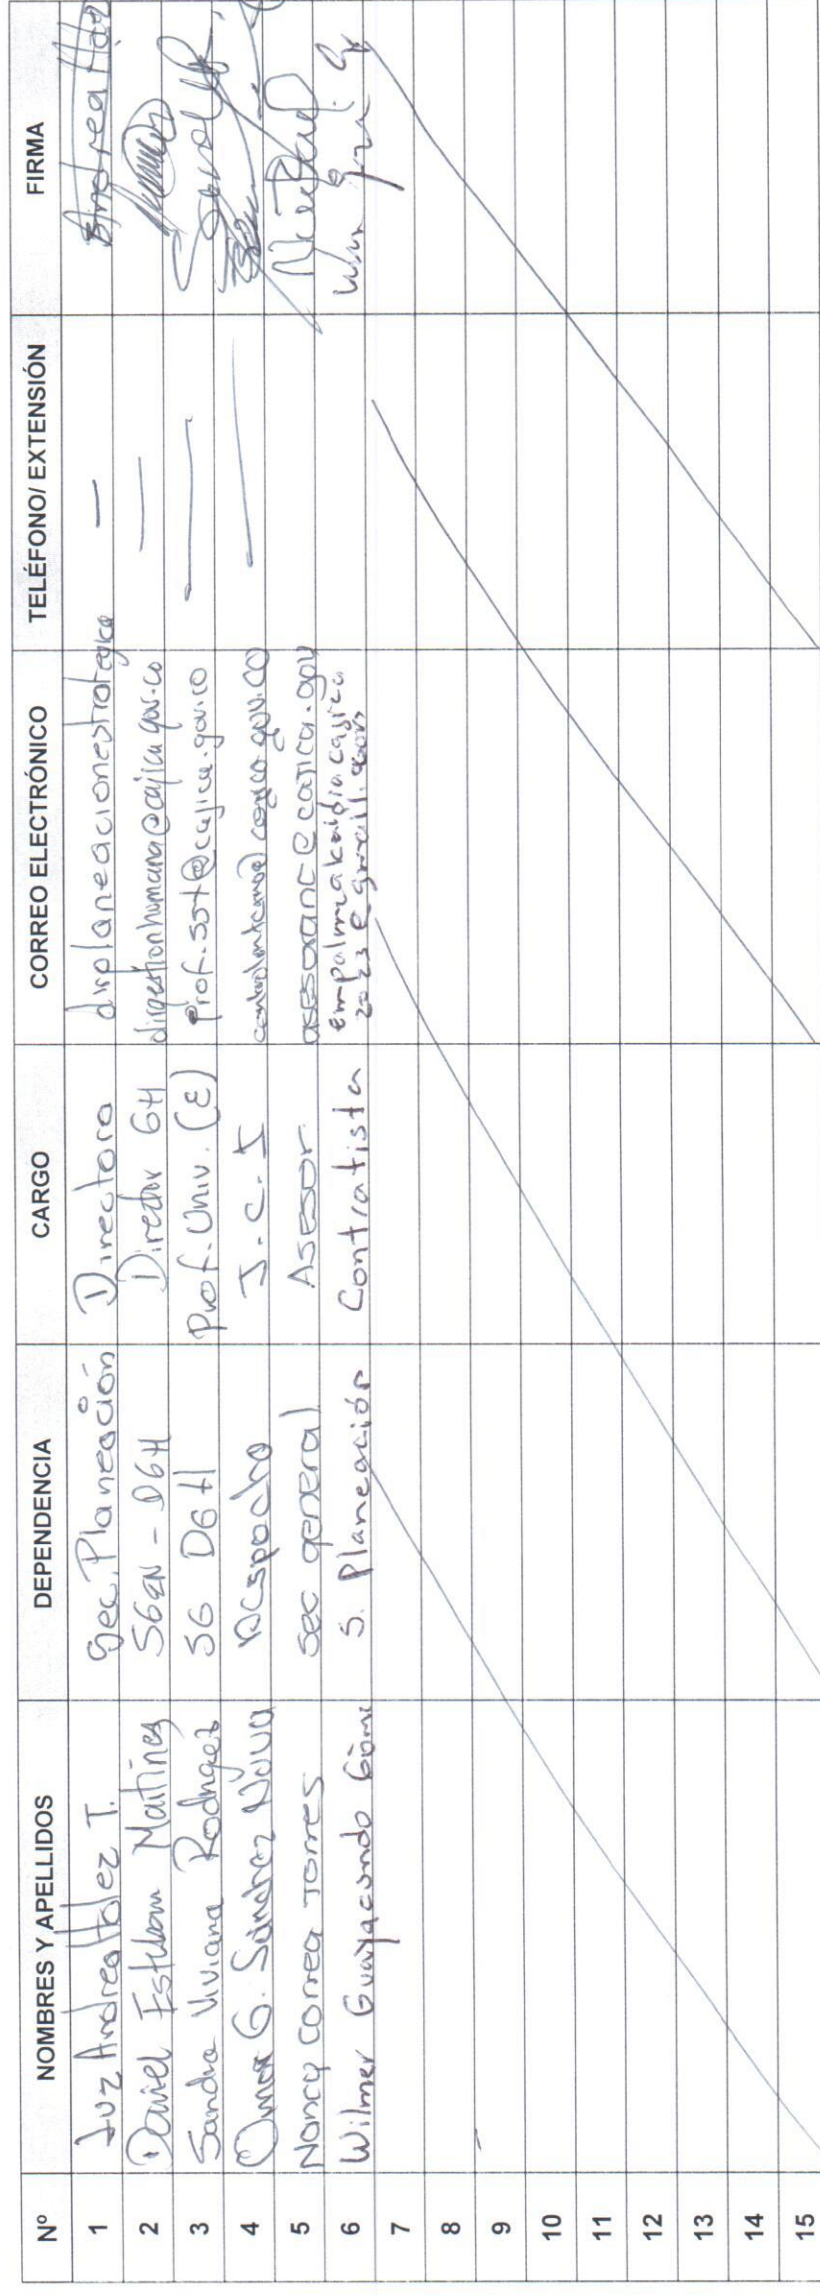 Nº NOMBRES Y APELLIDOS DEPENDENCIA CARGO CORREO ELECTRÓNICO TELÉFONO/ EXTENSIÓN FIRMA
1 Luz Andrea T. Sec. Planeación Directora dirplaneacionestrategica — Andrea
2 Daniel Esteban Martínez SGEN - DGH Director GH dirgestionhumana@cajica.gov.co —
3 Sandra Viviana Rodríguez SG DGH Prof. Univ. (E) prof.sst@cajica.gov.co —
4 Omar G. Sánchez Despacho J.C.I cajica.gov.co —
5 Nancy Correa Torres Sec general Asesor cajica.gov
6 Wilmer Guayacundo S. Planeación Contratista
2023@gmail.com
7
8
9
10
11
12
13
14
15